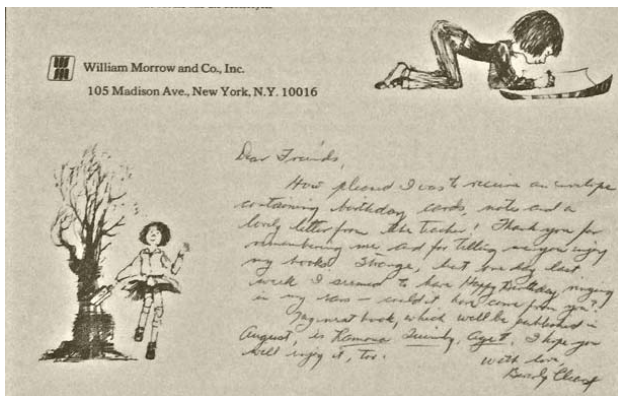 William Morrow and Co., Inc.
105 Madison Ave., New York, N.Y. 10016
Dear Friends,
How pleased I was to receive an envelope
containing birthday cards, notes and a
lovely letter from the teacher! Thank you for
remembering me and for telling me you enjoy
my books. Strange, but one day last
week I seemed to have Happy Birthday ringing
in my ears — could it have come from you?
My next book, which will be published in
August, is Ramona Quimby, Age 8. I hope you
will enjoy it, too.
With love,
Beverly Cleary